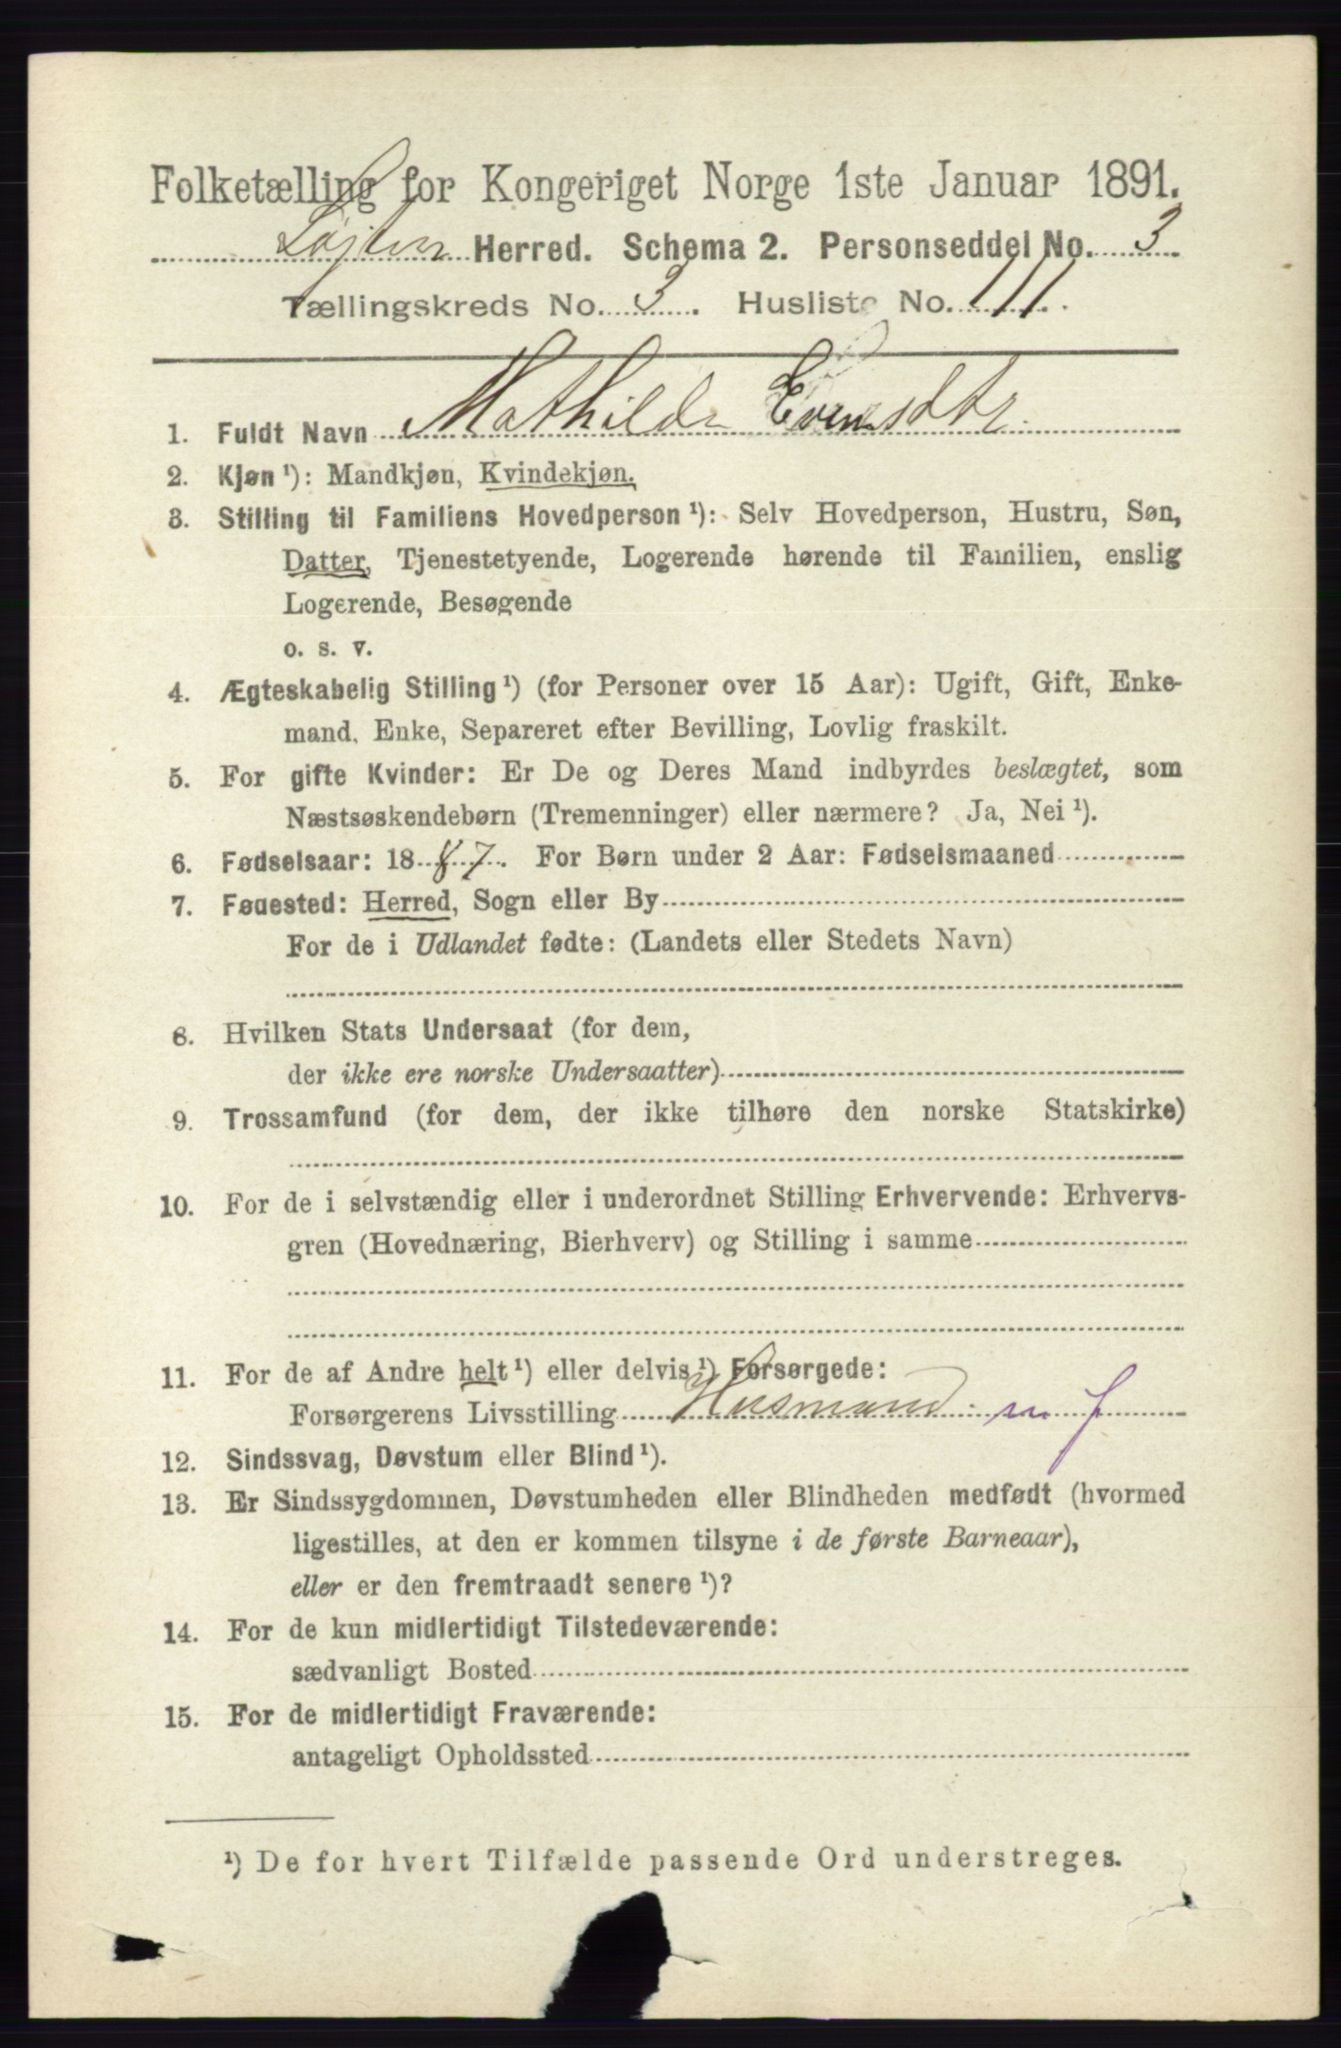 Folketælling for Kongeriget Norge 1ste Januar 1891.
Løjten Herred. Schema 2. Personseddel No. 3.
Tællingskreds No. 3. Husliste No. 111.
1. Fuldt Navn Mathilde Evensdtr.
2. Kjøn ¹): Mandkjøn, Kvindekjøn.
3. Stilling til Familiens Hovedperson ¹): Selv Hovedperson, Hustru, Søn,
Datter, Tjenestetyende, Logerende hørende til Familien, enslig
Logerende, Besøgende
o. s. v.
4. Ægteskabelig Stilling ¹) (for Personer over 15 Aar): Ugift, Gift, Enke-
mand, Enke, Separeret efter Bevilling, Lovlig fraskilt.
5. For gifte Kvinder: Er De og Deres Mand indbyrdes beslægtet, som
Næstsøskendebørn (Tremenninger) eller nærmere? Ja, Nei ¹).
6. Fødselsaar: 1887. For Børn under 2 Aar: Fødselsmaaned
7. Fødested: Herred, Sogn eller By
For de i Udlandet fødte: (Landets eller Stedets Navn)
8. Hvilken Stats Undersaat (for dem,
der ikke ere norske Undersaatter)
9. Trossamfund (for dem, der ikke tilhøre den norske Statskirke)
10. For de i selvstændig eller i underordnet Stilling Erhvervende: Erhvervs-
gren (Hovednæring, Bierhverv) og Stilling i samme
11. For de af Andre helt ¹) eller delvis ¹) Forsørgede:
Forsørgerens Livsstilling Husmand m j
12. Sindssvag, Døvstum eller Blind ¹).
13. Er Sindssygdommen, Døvstumheden eller Blindheden medfødt (hvormed
ligestilles, at den er kommen tilsyne i de første Barneaar),
eller er den fremtraadt senere ¹)?
14. For de kun midlertidigt Tilstedeværende:
sædvanligt Bosted
15. For de midlertidigt Fraværende:
antageligt Opholdssted
¹) De for hvert Tilfælde passende Ord understreges.